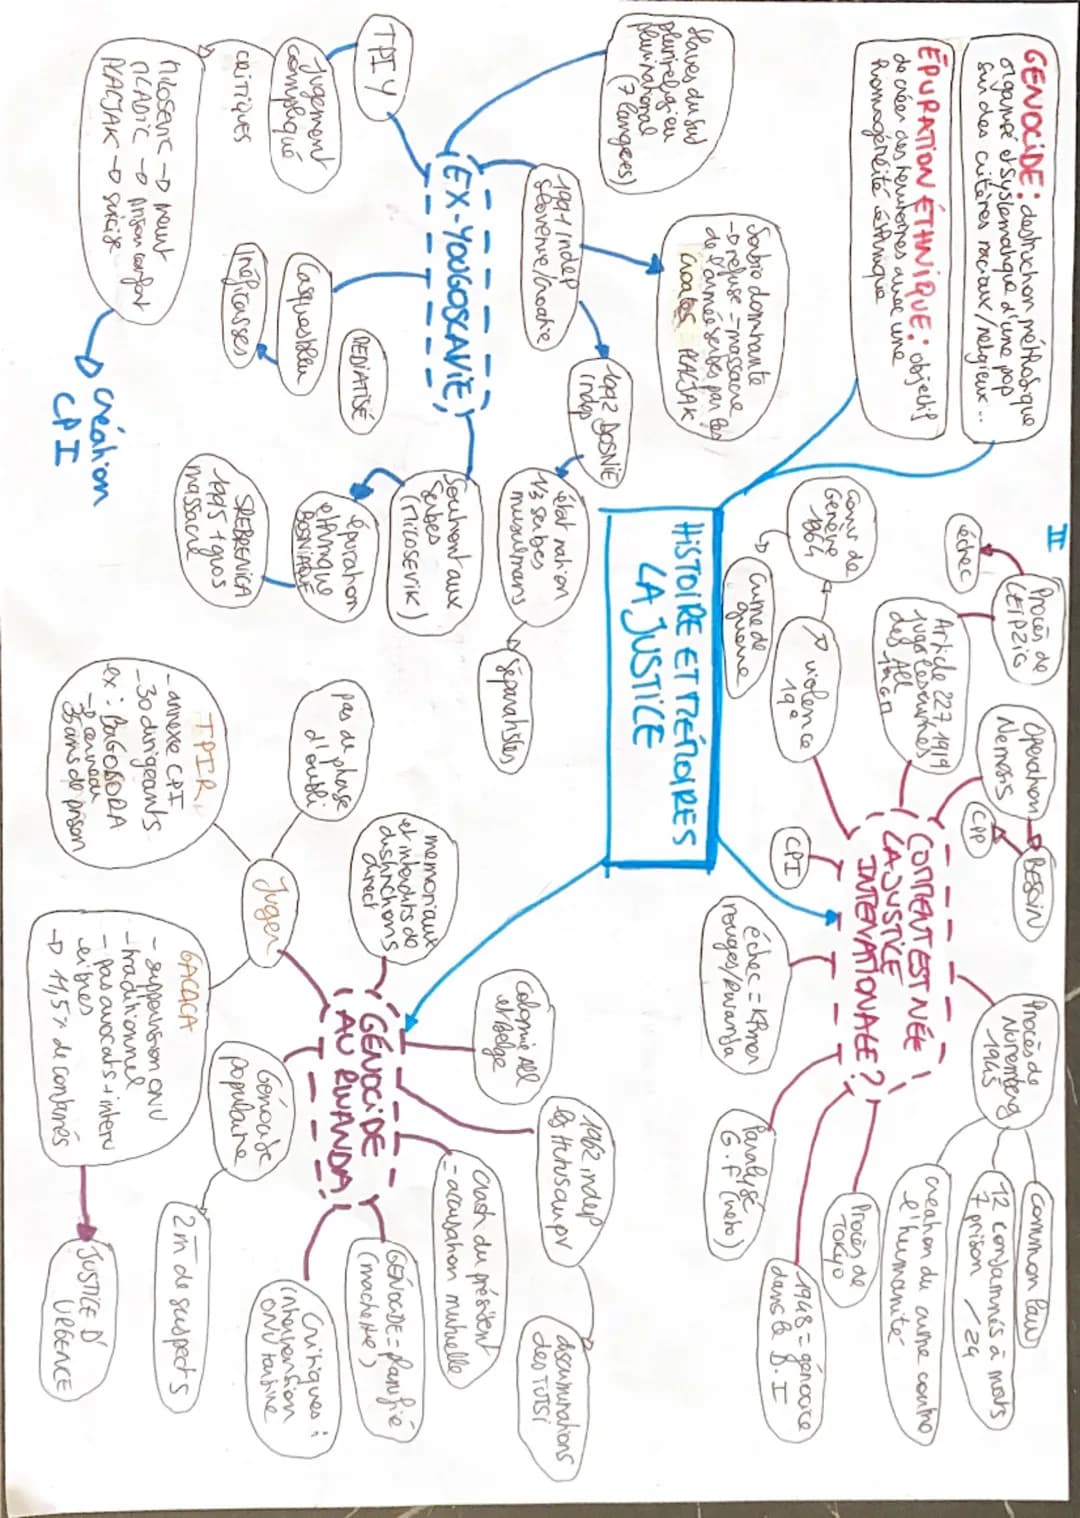 GENOCIDE : destruction méthodique
organisé et systématique d'une pop
sur des critères raciaux/religieux...
ÉPURATION ÉTHNIQUE : objectif
de créer des territoires avec une
homogénéité éthnique
HISTOIRE ET MÉMOIRES
LA JUSTICE
II
COMMENT EST NÉE
LA JUSTICE
INTERNATIONALE ?
Procès de
LEIPZIG
échec
Article 227, 1919
juger les crimes
des All
violence
19e
Conv de
Genève
1864
Crime de
guerre
Opération
Nemesis
BESOIN
CPP
CPI
Procès de
Nuremberg
1945
common law
12 condamnés à morts
7 prison / 24
création du crime contre
l'humanité
Procès de
TOKYO
1948 = génocide
dans le D.I
Paralysé
G.F (veto)
échec = Khmer
rouges/Rwanda
EX-YOUGOSLAVIE
Slaves du sud
plurireligieu
plurinational
(7 langues)
1991 indep
Slovénie/Croatie
Serbie dominante
→ refuse - massacre
de l'armée serbes par les
croates PLACJAK
1992 BOSNIE
indep
état nation
1/3 serbes
musulmans
Séparatistes
TPIY
Jugement
compliqué
critiques
Milosevic → meurt
MLADIC → prison confort
PLACJAK → suicide
création
CPI
Casques bleu
inéficasses
MEDIATISÉ
Soutient aux
Serbes
(Milosevik)
épuration
ethnique
BOSNIAQUE
SREBRENICA
1995 + gros
massacre
GÉNOCIDE
AU RWANDA
Colonie All
et Belge
1962 indep
les Hutus au pv
discriminations
des TUTSI
Crash du président
- accusation mutuelle
GÉNOCIDE = planifié
(machette)
Critiques :
intervention
ONU tardive
Génocide
populaire
2m de suspects
memoriaux
et interdits de
distinctions
direct
Juger
pas de phase
d'oubli
TPIR
- annexe CPI
- 30 dirigeants
ex : BAGOSORA
35 ans de prison
GACACA
- supervision ONU
- traditionnel
- pas avocats + interv
libres
→ 11,5%
JUSTICE D'
URGENCE